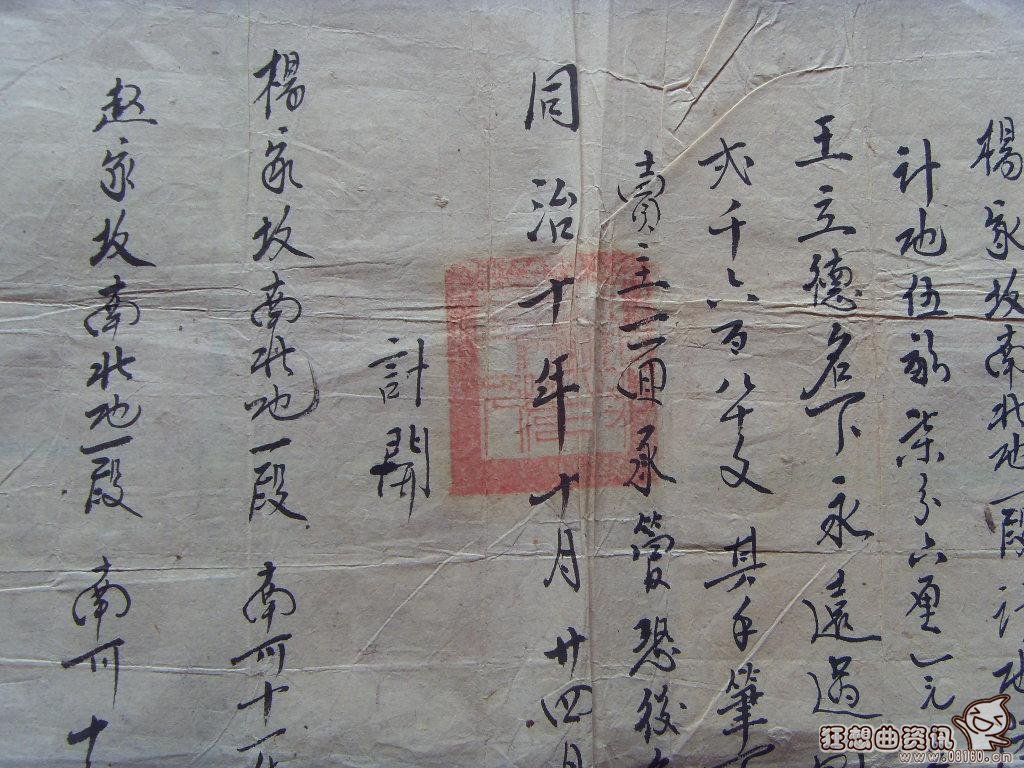 楊家坟南北地一段計地
計地伍畝柒分六厘
王立德名下永遠過
弍千六百八十文 其手筆
賣主一面承管恐後
同治十年十月廿四日
計開
楊家坟南北地一段 南可十一
赵家坟南北地一段 南可十
狂想曲资讯
www.808160.cn